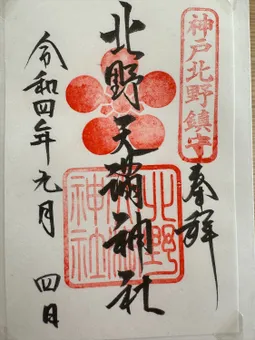 神戸北野鎮守
奉拝
北野天満神社
北野天満神社
令和四年元月四日